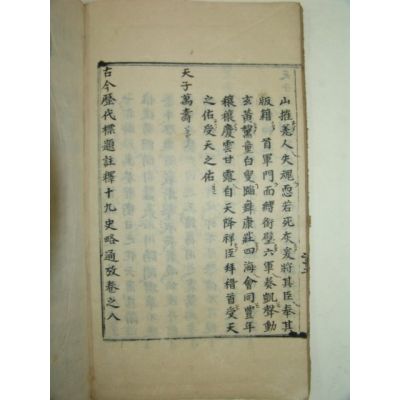 山摧羗人失魂㤀若死灰爰將其臣奉其
版籍首軍門而縛銜璧六軍奏凱聲動
玄黄鬐童白叟蹈舞康莊四海會同豊年
穰穰慶雲甘露自天降祥臣拜稽首受天
之佑受天之佑
天子萬壽
古今歷代標題註釋十九史略通攷卷之八